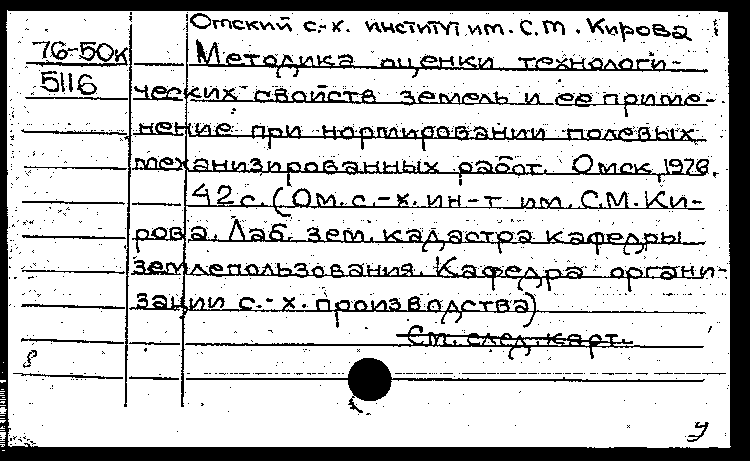 Омский с.-х. институт им. С.М. Кирова
76-50к Методика оценки технологи-
5116 ческих свойств земель и ее приме-
нение при нормировании полевых
механизированных работ. Омск, 1976.
42с. (Ом. с.-х. ин-т им. С.М. Ки-
рова. Лаб. зем. кадастра кафедры
землепользования. Кафедра органи-
зации с.-х. производства)
См. след. карт.
8
У